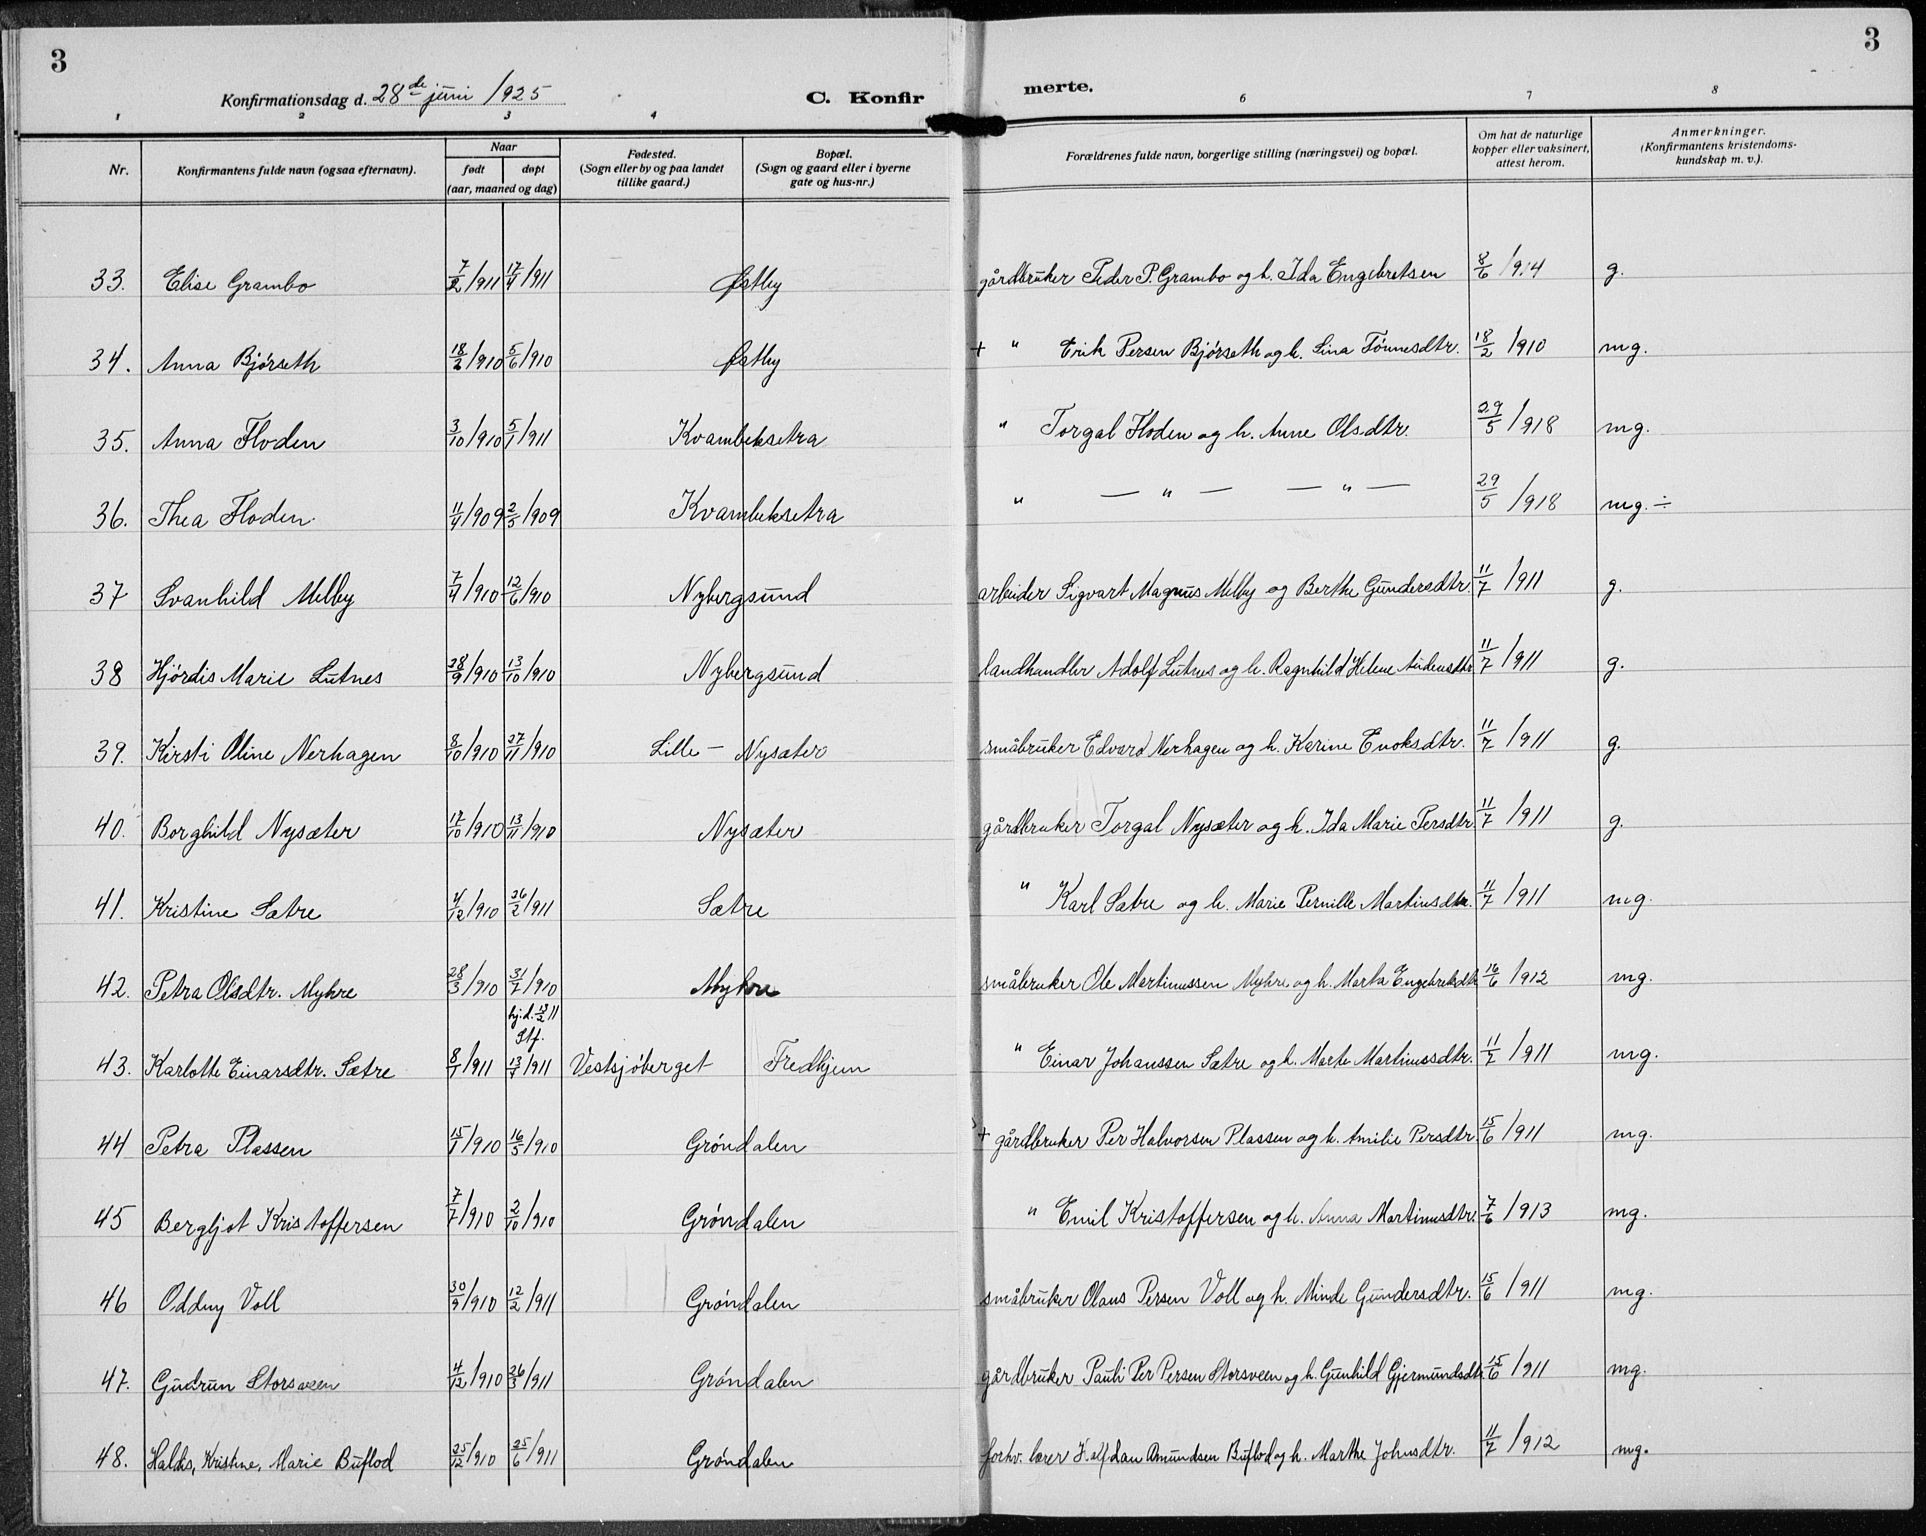 3
3
Konfirmationsdag d. 28de juni 1925
C. Konfir
merte.
1 2 3 4 6 7 8
Nr.
Konfirmantens fulde navn (ogsaa efternavn).
Naar
født døpt
(aar, maaned og dag)
Fødested.
(Sogn eller by og paa landet
tillike gaard.)
Bopæl.
(Sogn og gaard eller i byerne
gate og hus-nr.)
Forældrenes fulde navn, borgerlige stilling (næringsvei) og bopæl.
Om hat de naturlige
kopper eller vaksinert,
attest herom.
Anmerkninger.
(Konfirmantens kristendoms-
kundskap m. v.).
33. Elise Grambo 7/2/1911 17/4/1911 Østby gårdbruker Peder P. Grambo og h. Ida Engebretsen 8/6/1914 g.
34. Anna Bjørseth 18/2/1910 5/6/1910 Østby + " Erik Persen Bjørseth og h. Lina Tønnesdtr. 18/2/1910 mg.
35. Anna Floden 3/10/1910 5/1/1911 Kvambeksetra " Torgal Floden og h. Anne Olsdtr. 29/5/1918 mg.
36. Thea Floden 11/4/1909 2/5/1909 Kvambeksetra " — " — — " — 29/5/1918 mg. ÷
37 Svanhild Melby 7/4/1910 12/6/1910 Nybergsund arbeider Sigvart Magnus Melby og Berthe Gundersdtr. 11/7/1911 g.
38 Hjørdis Marie Lutnes 28/9/1910 13/10/1910 Nybergsund landhandler Adolf Lutnes og h. Ragnhild Helene 11/7/1911 g.
39. Kirsti Oline Nerhagen 8/10/1910 27/11/1910 Lille - Nysæter småbruker Edvard Nerhagen og h. Karine Enoksdtr. 11/7/1911 g.
40. Borghild Nysæter 17/10/1910 13/11/1910 Nysæter gårdbruker Torgal Nysæter og h. Ida Marie Persdtr. 11/7/1911 g.
41. Kristine Sætre 4/12/1910 26/2/1911 Sætre " Karl Sætre og h. Marie Pernille Martinusdtr. 11/7/1911 mg.
42. Petra Olsdtr. Myhre 28/3/1910 31/7/1910 Myhre småbruker Ole Martinussen Myhre og h. Marta Engebretsdtr. 16/6/1912 mg.
hj. d.
Stf.
43. Karlotte Einarsdtr. Sætre 8/1/1911 13/4/1911 Vestsjøberget Fredhjem " Einar Johanssen Sætre og h. Marte Martinusdtr. 11/7/1911 mg.
44 Petra Plassen 15/1/1910 16/5/1910 Grøndalen + gårdbruker Per Halvorsen Plassen og h. Amilie Persdtr. 15/6/1911 mg.
45 Bergljot Kristoffersen 7/7/1910 2/10/1910 Grøndalen " Emil Kristoffersen og h. Anna Martinusdtr. 7/6/1913 mg.
46 Oddny Voll 30/9/1910 12/2/1911 Grøndalen småbruker Olaus Persen Voll og h. Minde Gundersdtr. 15/6/1911 mg.
47. Gudrun Storsveen 4/12/1910 26/3/1911 Grøndalen gårdbruker Pauli Per Persen Storsveen og h. Gunhild Gjermundsdtr. 15/6/1911 mg.
48. Haldis, Kristine, Marie Buflod 25/12/1910 25/6/1911 Grøndalen forhv. lærer Halfdan Amundsen Buflod og h. Marthe Johnsdtr. 11/7/1912 mg.